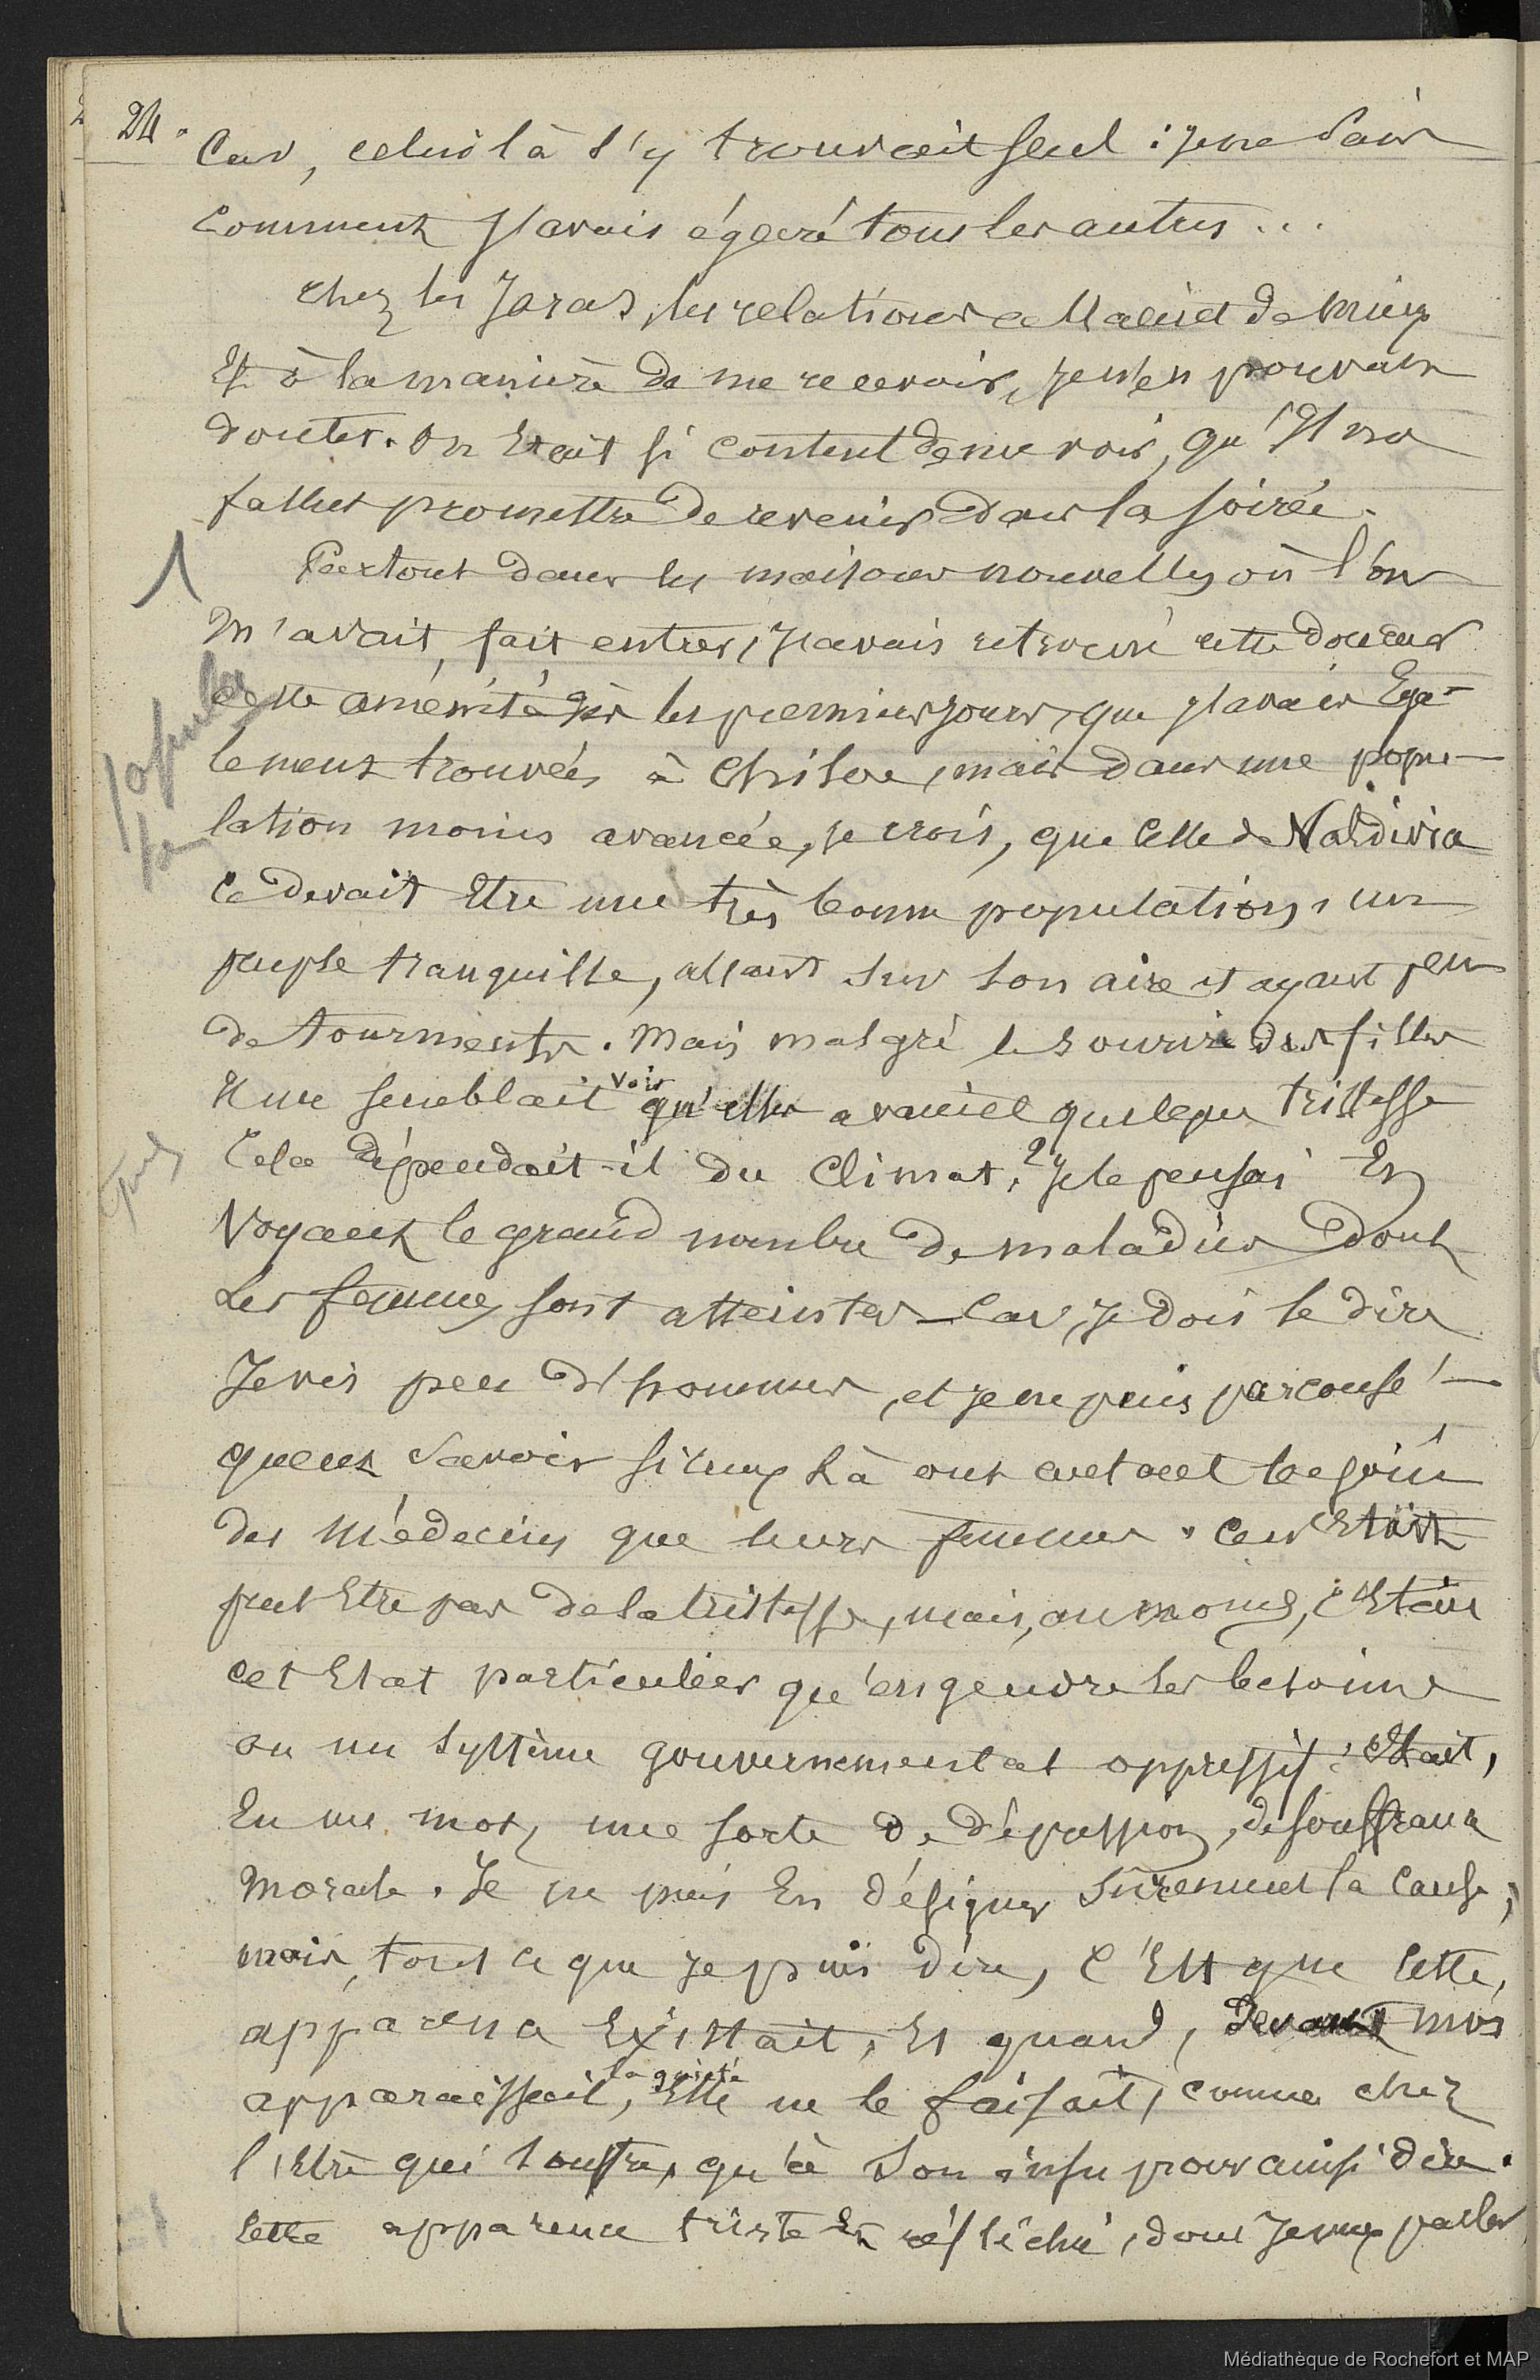 24.
Car, celui là s'y trouvait seul : je ne sais
comment j'avais égaré tous les autres ...
Chez les Jaras, les relations allaient de mieux
Et à la manière de me recevoir, je n'en pouvais
douter. On Etait si content de me voir, qu'Il me
fallut promettre de revenir dans la soirée.
1
Partout dans les maisons nouvelles où l'on
m'avait fait entrer, j'avais retrouvé cette douceur
cette aménité dès les premiers jours, que j'avais Ega-
lement trouvées à Chiloe, mais dans une popu-
lation moins avancée, je crois, que celle de Valdivia
Ce devait Etre une très bonne population, un
peuple tranquille, allant sur son aire et ayant peu
de tourments. Mais malgré le sourire des filles
Il me semblait voir qu'elles avaient quelque tristesse
Cela dépendait-il du Climat ? Je le pensai En
Voyant le grand nombre de maladies dont
Les femmes sont atteintes - Car, je dois le dire
Je vis peu d'hommes, et je ne puis par consé-
quent savoir si ceux là ont autant besoin
des Médecins que leurs femmes. Ce n'Etait
peut Etre pas de la tristesse, mais, au moins, c'Etait
cet Etat particulier qu'engendre les besoins
ou un système gouvernemental oppressif ; c'Etait,
En un mot, une sorte de dépression, de souffrance
Morale. Je ne puis En désigner surement la Cause ;
mais, tout ce que je puis dire, C'Est que cette
apparence Existait, Et quand, devant moi
apparaissait, la gaieté Elle ne le faisait, comme chez
l'Etre qui souffre, qu'à son insu pour ainsi dire.
Cette apparence triste Et réfléchie, dont Je veux parler
Médiathèque de Rochefort et MAP